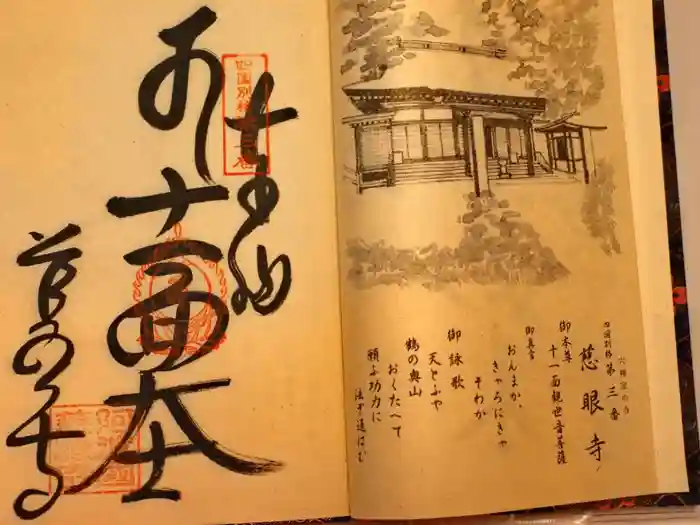 穴禅定の寺
四国別格 第三番
慈眼寺
御本尊
十一面観世音菩薩
御真言
おんまか、
きゃろにきゃ
そわか
御詠歌
天とぶや
鶴の奥山
おくたへて
願ふ功力に
法ぞ通はむ
奉納
十一面大士